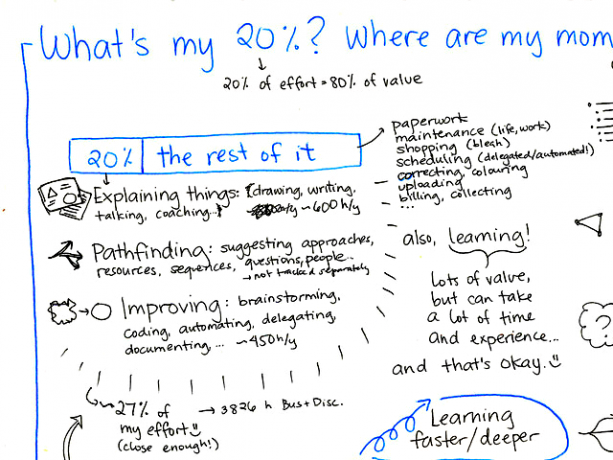 What's my 20%? Where are my mom
20% of effort = 80% of value
20% the rest of it
paperwork
maintenance (life, work)
shopping (bleah)
scheduling (delegated/automated!)
correcting, colouring
uploading
billing, collecting
...
Explaining things: drawing, writing,
talking, coaching...
~600h/y
Pathfinding: suggesting approaches,
resources, sequences, questions, people...
→ not tracked separately
Improving: brainstorming,
coding, automating, delegating,
documenting, ... ~450h/y
also, learning!
Lots of value,
but can take
a lot of time
and experience...
and that's okay.
27% of
my effort
(close enough!)
→ 3826 h Bus+Disc.
Learning
faster/deeper
?